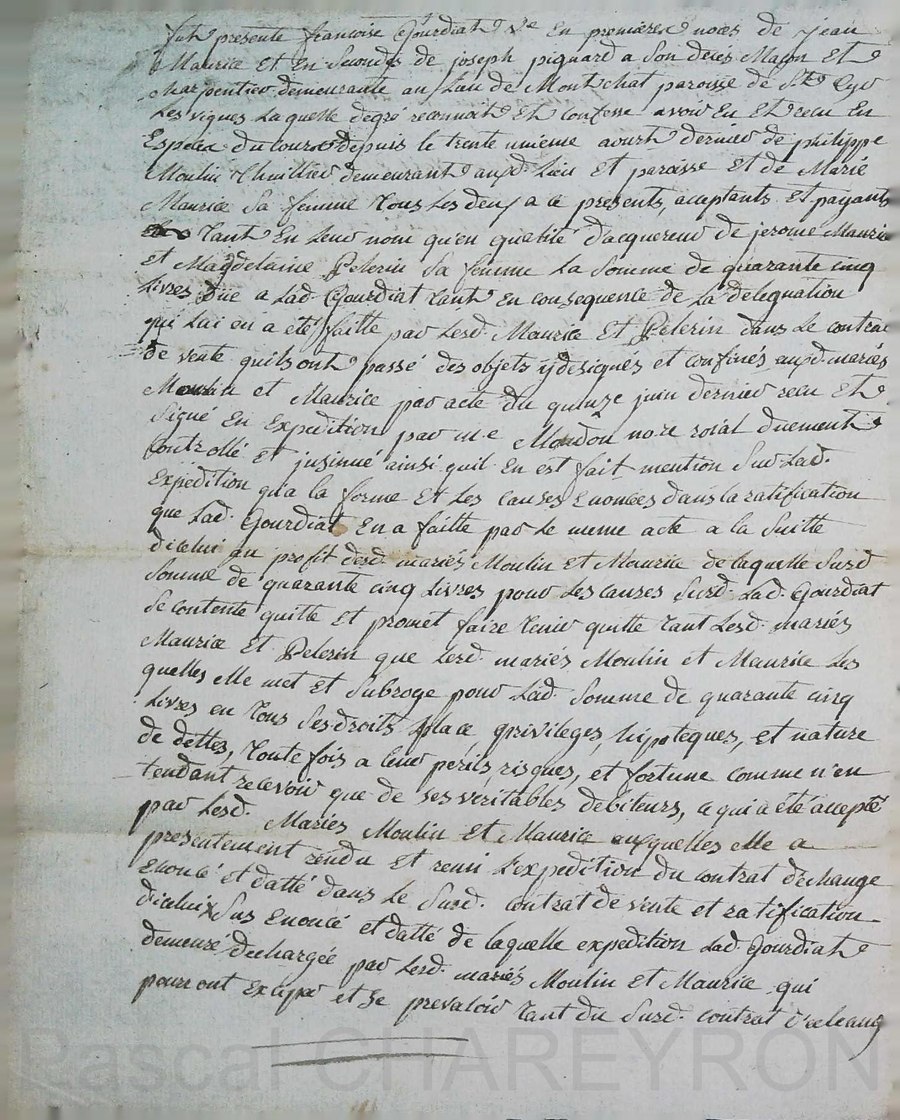 fut presente francoise Gourdiat Ve En premieres noces de jean
Maurice Et En Secondes de joseph pignard a Son decés Maçon Et
charpentier demeurante au Lieu de Montchat paroisse de St Cyr
Les vignes Laquelle degré reconnait Et Confesse avoir Eu Et recu En
Especes du cours depuis le trente unieme aoust dernier de philippe
Moulin thuillier demeurant aud. Lieu Et paroisse Et de Marie
Maurice Sa femme tous Les deux a ce presents, aceptants Et payants
tant En Leur nom qu'en qualité d'acquereur de jerome Maurice
Et Magdelaine Pelerin Sa femme La Somme de quarante cinq
Livres Düe a Lad. Gourdiat tant En consequence de La delegation
qui Lui en a été faitte par Lesd. Maurice Et Pelerin dans Le contrat
de vente quils ont passé des objets y designés et confinés auxd. mariés
Moulin et Maurice par acte du quinze juin dernier recu Et
Signé En Expedition par me Mondon no.re roial Duement
Controllé Et jnsinué ainsi quil En est fait mention Sur Lad.
Expedition qu'a la forme Et Les causes Enoncées dans la ratification
que Lad. Gourdiat En a faitte par Le meme acte a la Suitte
dicelui au profit desd. mariés Moulin Et Maurice de laquelle Susd
Somme de quarante cinq Livres pour Les causes Susd. Lad. Gourdiat
Se contente quitte et promet faire tenir quitte tant Lesd. mariés
Maurice Et Pelerin que Lesd. mariés Moulin et Maurice Les
quelles elle met Et Subroge pour Lad. Somme de quarante cinq
Livres en tous Ses droits place privileges, hipoteques, et nature
de dettes, toute fois a leur périls risques, et fortune comme n'en
tendant recevoir que de ses veritables debiteurs, ce qui a été accepté
par Lesd. Mariés Moulin Et Maurice auxquelles elle a
presentement rendu Et remi L'expedition du contrat d'échange
Enoncé et datté dans Le Susd. contrat de vente et ratification
dicelui Sus Enoncé et datté de laquelle expedition Lad. Gourdiat
demeure déchargée par Lesd. mariés Moulin Et Maurice qui
pourront Exciper et Se prevaloir tant du Susd. contrat d'echange
Pascal CHAREYRON